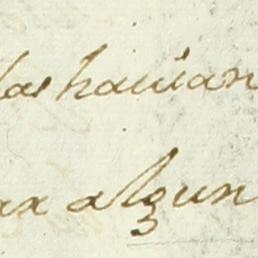 las hauian
ax algun